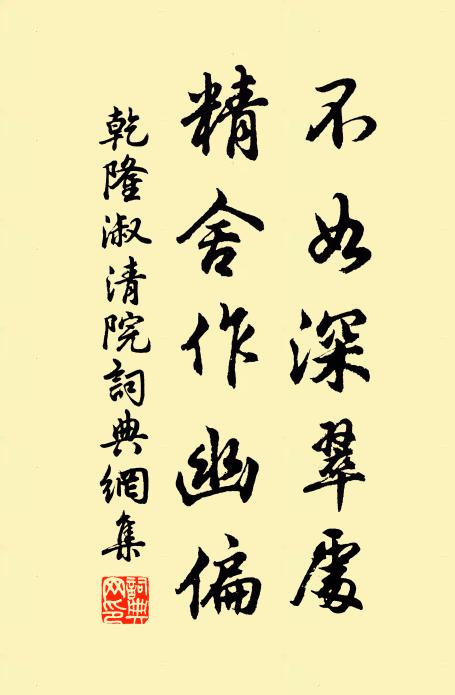 不如深翠處
精舍作幽偏
乾隆淑清院詞典網集
詞典網印